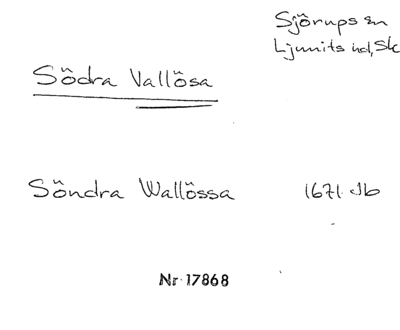 Sjörups sn
Ljunits hd, Sk
Södra Vallösa
Söndra Wallössa 1671 Jb
Nr 17868